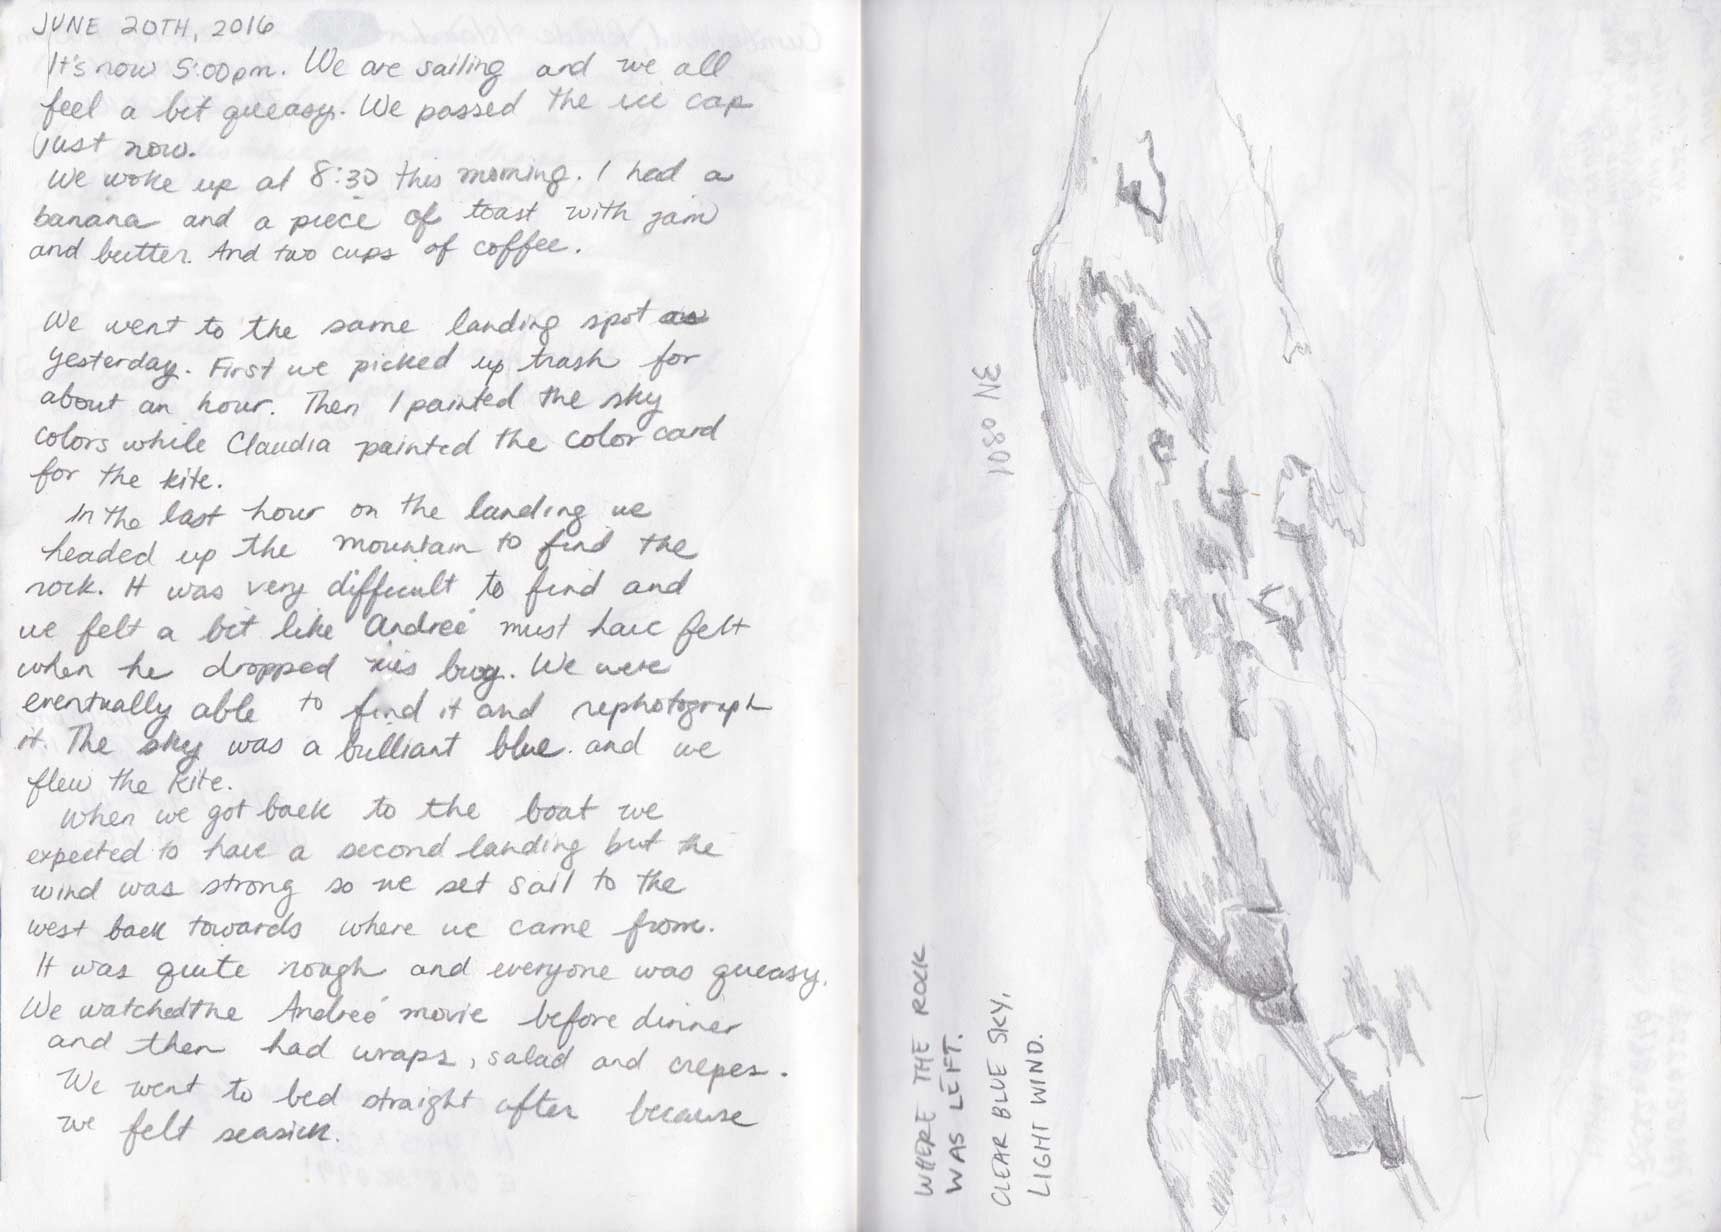 JUNE 20TH, 2016
It's now 5:00pm. We are sailing and we all
feel a bit queasy. We passed the ice cap
just now.
We woke up at 8:30 this morning. I had a
banana and a piece of toast with jam
and butter. And two cups of coffee.
We went to the same landing spot as
yesterday. First we picked up trash for
about an hour. Then I painted the sky
colors while Claudia painted the color card
for the kite.
In the last hour on the landing we
headed up the mountain to find the
rock. It was very difficult to find and
we felt a bit like Andreé must have felt
when he dropped his buoy. We were
eventually able to find it and rephotograph
it. The sky was a brilliant blue. and we
flew the kite.
When we got back to the boat we
expected to have a second landing but the
wind was strong so we set sail to the
west back towards where we came from.
It was quite rough and everyone was queasy.
We watched the Andreé movie before dinner
and then had wraps, salad and crepes.
We went to bed straight after because
we felt seasick.
108° NE
WHERE THE ROCK
WAS LEFT.
CLEAR BLUE SKY,
LIGHT WIND.